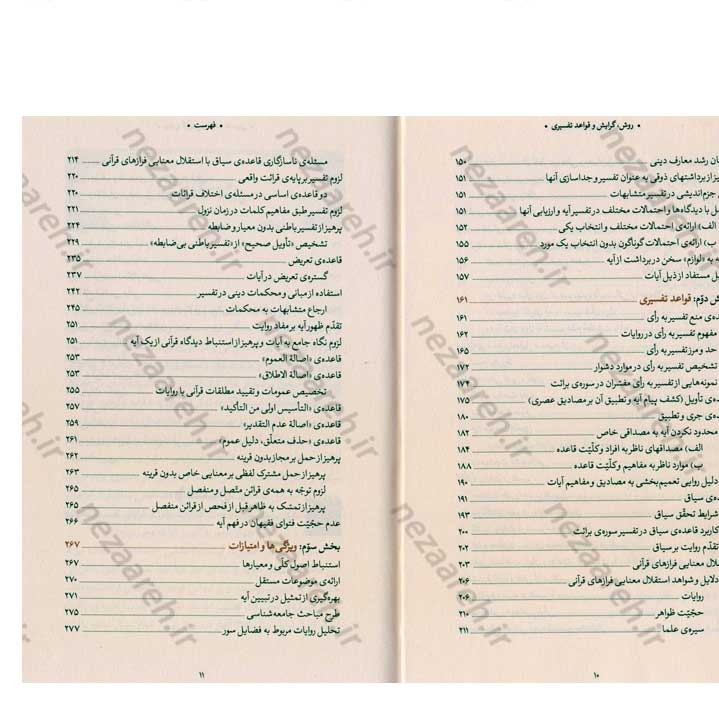 • روش، گرایش و قواعد تفسیری •
رشد معارف دینی ۱۵۰
از برداشتهای ذوقی به عنوان تفسیر و جداسازی آنها ۱۵۱
جزم‌اندیشی در تفسیر متشابهات ۱۵۱
با دیدگاه‌ها و احتمالات مختلف در تفسیر آیه و ارزیابی آنها ۱۵۱
الف) ارائه‌ی احتمالات مختلف و انتخاب یکی ۱۵۲
ب) ارائه‌ی احتمالات گوناگون بدون انتخاب یک مورد ۱۵۵
به «لوازم» سخن در برداشت از آیه ۱۵۶
مستفاد از ذیل آیات ۱۵۷
دوّم: قواعد تفسیری ۱۶۱
منع تفسیر به رأی ۱۶۱
مفهوم تفسیر به رأی در روایات ۱۶۲
حد و مرز تفسیر به رأی ۱۶۵
تشخیص تفسیر به رأی در موارد دشوار ۱۷۲
نمونه‌هایی از تفسیر به رأی مفسّران در سوره‌ی برائت ۱۷۴
تأویل (کشف پیام آیه و تطبیق آن بر مصادیق عصری) ۱۷۵
جری و تطبیق ۱۸۰
محدود نکردن آیه به مصداقی خاص ۱۸۲
الف) مصداقهای ناظر به افراد و کلّیّت قاعده ۱۸۴
ب) موارد ناظر به مفاهیم و کلّیّت قاعده ۱۸۸
دلیل روایی تعمیم‌بخشی به مصادیق و مفاهیم آیات ۱۹۰
سیاق ۱۹۱
شرایط تحقّق سیاق ۱۹۳
کاربرد قاعده‌ی سیاق در تفسیر سوره‌ی برائت ۲۰۰
تقدّم روایت بر سیاق ۲۰۲
معنایی فرازهای قرآنی ۲۰۳
دلایل و شواهد استقلال معنایی فرازهای قرآنی ۲۰۶
روایات ۲۰۶
حجّیّت ظواهر ۲۱۰
سیره‌ی علما ۲۱۱
۱۰
• فهرست •
مسئله‌ی ناسازگاری قاعده‌ی سیاق با استقلال معنایی فرازهای قرآنی ۲۱۴
لزوم تفسیر بر پایه‌ی قرائت واقعی ۲۲۰
دو قاعده‌ی اساسی در مسئله‌ی اختلاف قرائات ۲۲۰
لزوم تفسیر طبق مفاهیم کلمات در زمان نزول ۲۲۱
پرهیز از تفسیر باطنی بدون معیار و ضابطه ۲۲۴
تشخیص «تأویل صحیح» از «تفسیر باطنی بی‌ضابطه» ۲۲۹
قاعده‌ی تعریض ۲۳۵
گستره‌ی تعریض در آیات ۲۳۷
استفاده از مبانی و محکمات دینی در تفسیر ۲۴۲
ارجاع متشابهات به محکمات ۲۴۵
تقدّم ظهور آیه بر مفاد روایت ۲۵۱
لزوم نگاه جامع به آیات و پرهیز از استنباط دیدگاه قرآنی از یک آیه ۲۵۱
قاعده‌ی «اصالة العموم» ۲۵۳
قاعده‌ی «اصالة الاطلاق» ۲۵۳
تخصیص عمومات و تقیید مطلقات قرآنی با روایات ۲۵۵
قاعده‌ی «التأسیس اولی من التأکید» ۲۵۷
قاعده‌ی «اصالة عدم التقدیر» ۲۵۹
قاعده‌ی «حذف متعلّق، دلیل عموم» ۲۶۱
پرهیز از حمل بر مجاز بدون قرینه ۲۶۲
پرهیز از حمل مشترک لفظی بر معنایی خاص بدون قرینه ۲۶۳
لزوم توجّه به همه‌ی قرائن متّصل و منفصل ۲۶۵
پرهیز از تمسّک به ظاهر قبل از فحص از قرائن منفصل ۲۶۵
عدم حجّیّت فتوای فقیهان در فهم آیه ۲۶۶
بخش سوّم: ویژگی‌ها و امتیازات ۲۶۷
استنباط اصول کلّی و معیارها ۲۶۷
ارائه‌ی موضوعات مستقل ۲۷۰
بهره‌گیری از تمثیل در تبیین آیه ۲۷۱
طرح مباحث جامعه‌شناسی ۲۷۵
تحلیل روایات مربوط به فضایل سور ۲۷۷
۱۱
nezaareh.ir